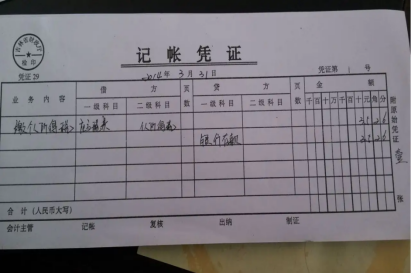 记帐凭证
凭证29
2014年3月31日
凭证第1号
业务内容 借方 页数 贷方 页数 金额
一级科目 二级科目 一级科目 二级科目 千百十万千百十元角分
缴个人所得税 个人所得税
银行存款
附原始凭证 壹 张
合计(人民币大写)
会计主管 记帐 复核 出纳 制证